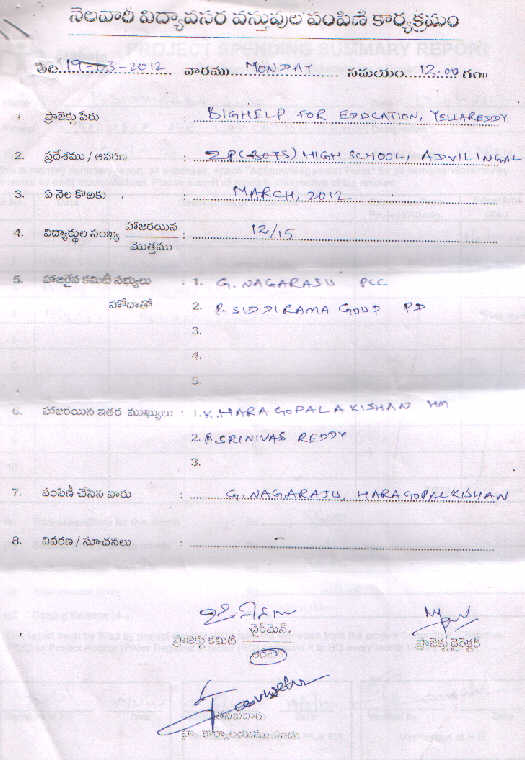 నెలవారీ విద్యావసర వస్తువుల పంపిణీ కార్యక్రమం
తేది 19-03-2012 వారము MONDAY సమయం 12:00 గం॥
1. ప్రాజెక్టు పేరు : BIGHELP FOR EDUCATION, YELLAREDDY
2. ప్రదేశము / ఊరు : ZP(BOYS) HIGH SCHOOL, ADVILINGAL
3. ఏ నెల కొఱకు : MARCH, 2012
4. విద్యార్థుల సంఖ్య హాజరయిన / మొత్తము : 12/15
5. హాజరైన కమిటీ సభ్యులు : 1. G. NAGARAJU PCC
హోదాతో 2. B SIDDIRAMA GOUD PD
3.
4.
5.
6. హాజరయిన ఇతర ముఖ్యులు : 1. K. HARA GOPALA KISHAN HM
2. B. SRINIVAS REDDY
3.
7. పంపిణీ చేసిన వారు : G. NAGARAJU, HARAGOPAL KISHAN
8. వివరణ / సూచనలు : -
ప్రాజెక్టు కమిటీ ఛైర్మెన్. ప్రాజెక్టు డైరెక్టర్